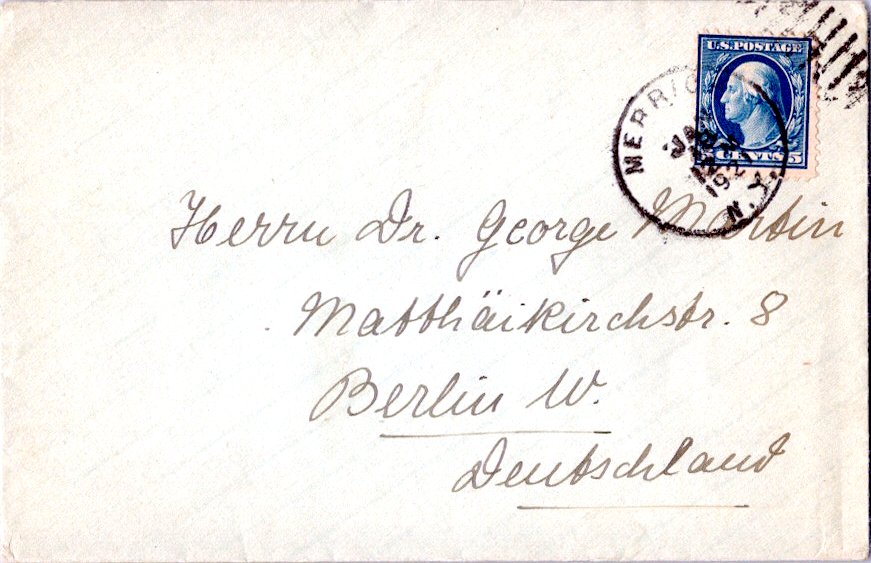 U.S. POSTAGE
CENTS 5
MERRICK
N.Y.
Herrn Dr. George Martin
Matthäikirchstr. 8
Berlin W.
Deutschland